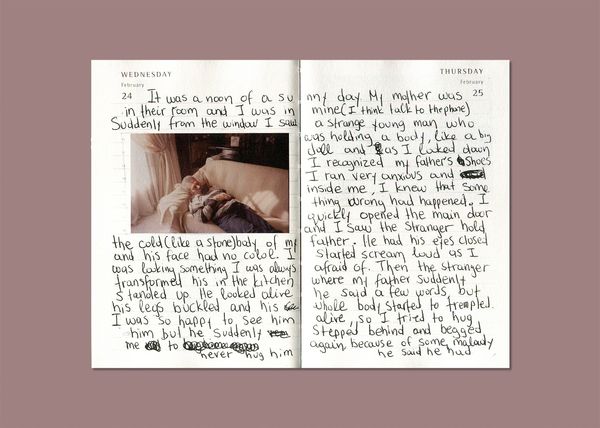 WEDNESDAY THURSDAY
February February
24 25
It was a noon of a su nny day My mother was
in their room and I was in mine (I think talk to the phone)
Suddenly from the window I saw a strange young man who
was holding a body, like a big
doll and as I looked down
I recognized my father's shoes
I ran very anxious and
inside me, I knew that some
thing wrong had happened. I
quickly opened the main door
and I saw the stranger hold
the cold (like a stone) body of my father. He had his eyes closed
and his face had no color. I started scream loud as I
was looking something I was always afraid of. Then the stranger
transformed his in the kitchen where my father suddenly
standed up. He looked alive he said a few words, but
his legs buckled and his whole body started to trempled.
I was so happy to see him alive, so I tried to hug
him but he suddenly stepped behind and begged
me to never hug him again, because of some malady
he said he had